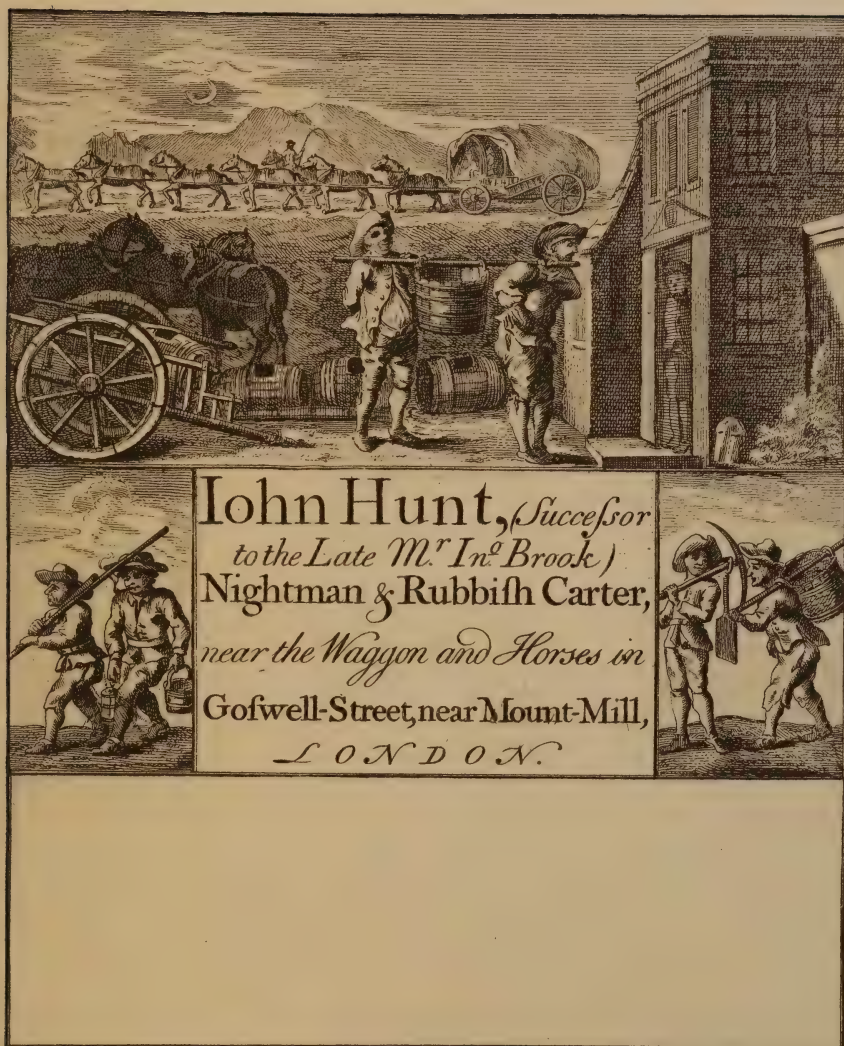 Iohn Hunt, (Succeſsor
to the Late Mr. Ino. Brook)
Nightman & Rubbiſh Carter,
near the Waggon and Horses in
Goſwell-Street, near Mount-Mill,
LONDON.